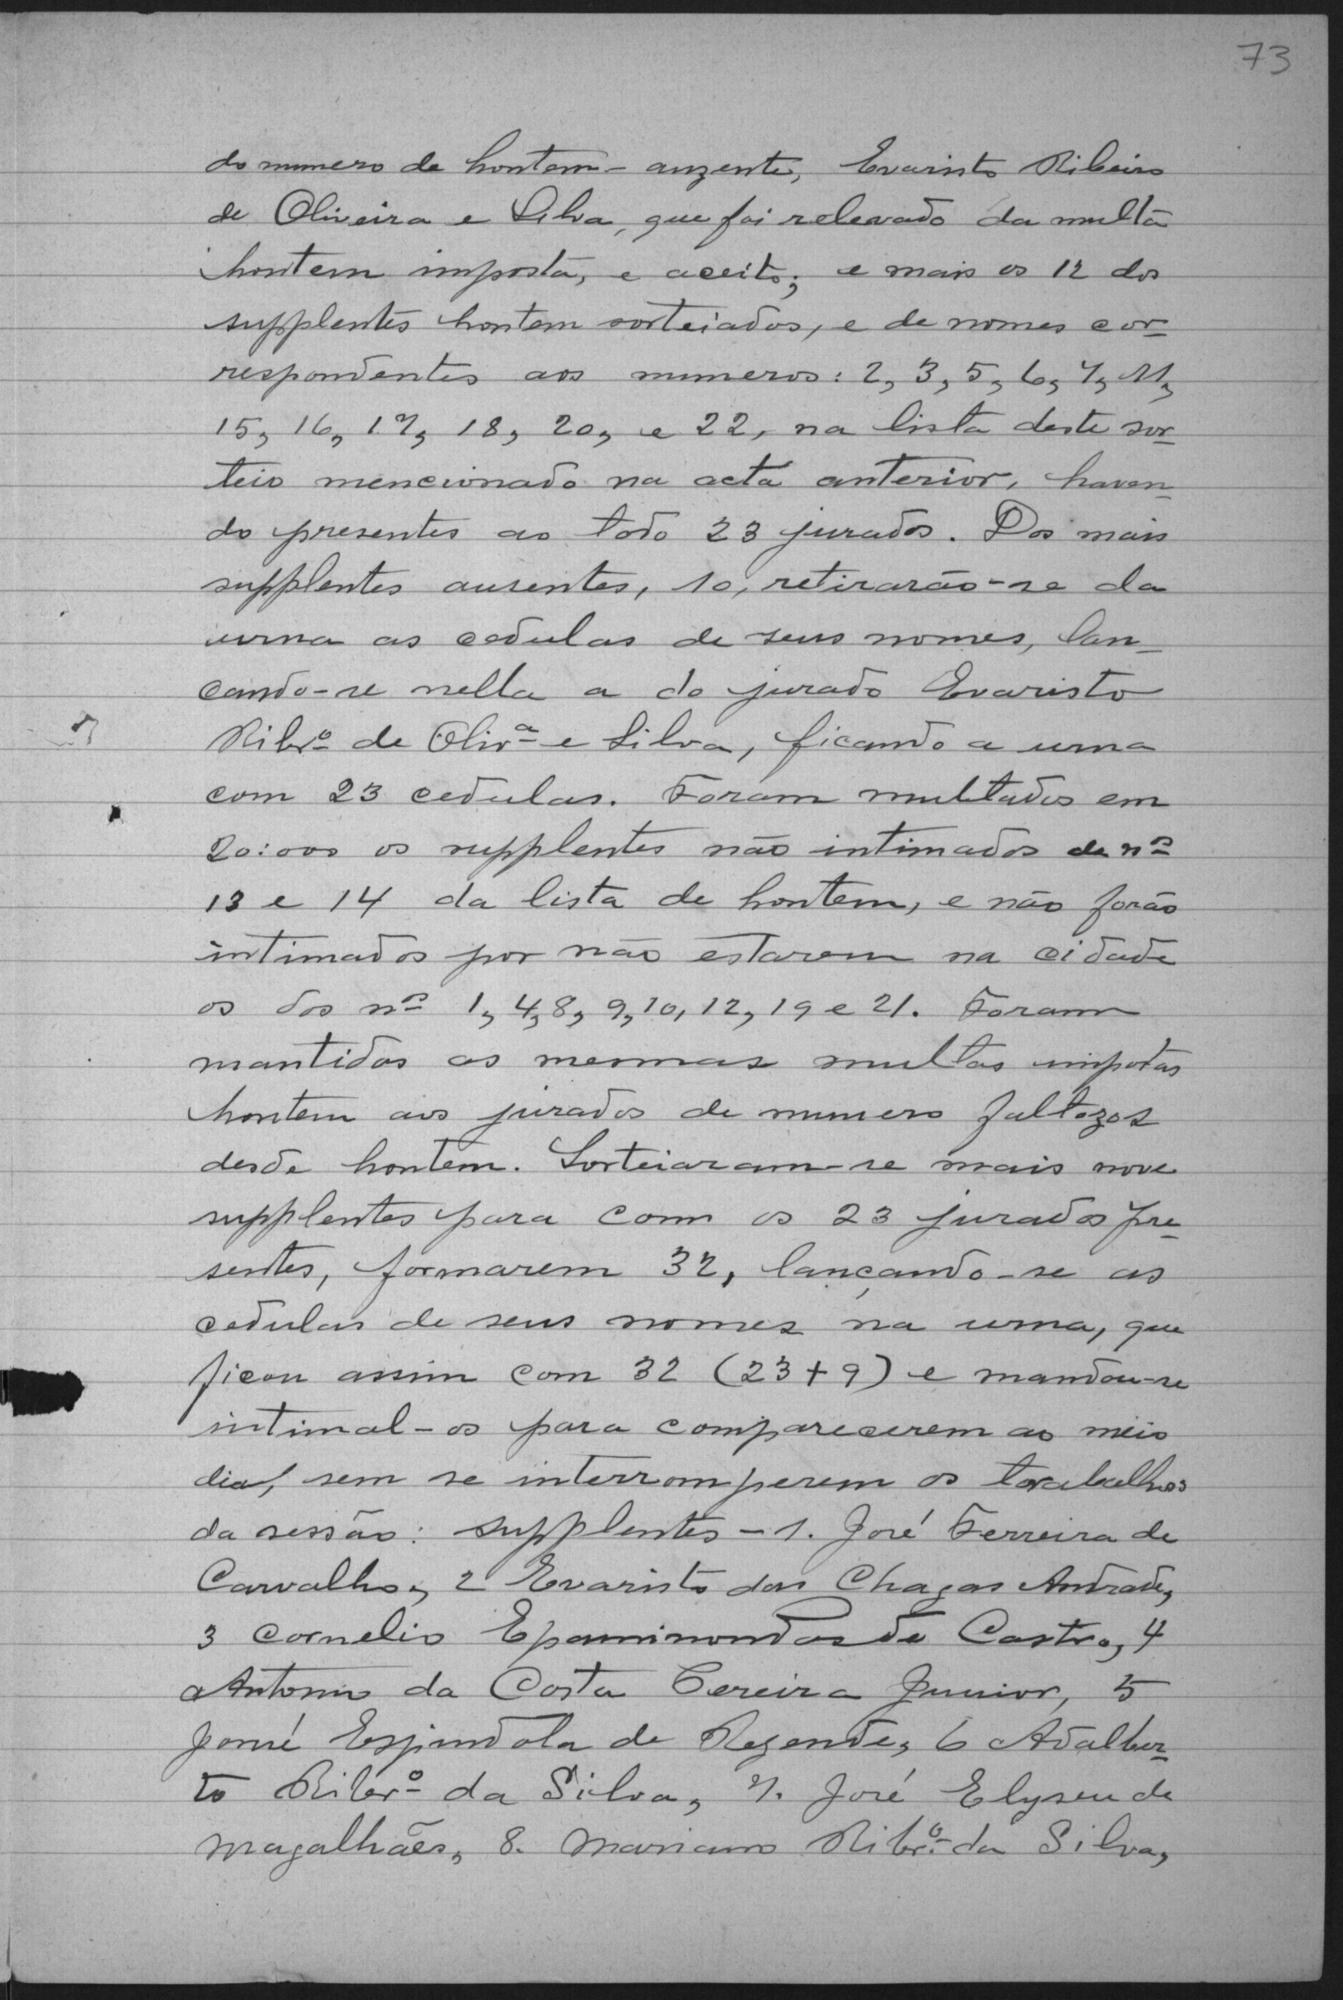 73
do numero de hontem - auzente, Evaristo Ribeiro
de Oliveira e Silva, que foi relevado da multa
hontem imposta, e aceito; e mais os 12 dos
supplentes hontem sorteiados, e de nomes cor-
respondentes aos numeros: 2, 3, 5, 6, 7, 11,
15, 16, 17, 18, 20, e 22, na lista deste sor-
teio mencionado na acta anterior, haven-
do presentes ao todo 23 jurados. Dos mais
supplentes ausentes, 10, retirarão-se da
urna as cedulas de seus nomes, lan-
cando-se nella a do jurado Evaristo
Ribrº de Olivª e Silva, ficando a urna
com 23 cedulas. Foram multados em
20:000 os supplentes não intimados de nos
13 e 14 da lista de hontem, e não forão
intimados por não estarem na cidade
os dos nos 1, 4, 8, 9, 10, 12, 19 e 21. Foram
mantidas as mesmas multas impostas
hontem aos jurados de numero faltozos
desde hontem. Sorteiaram-se mais nove
supplentes para com os 23 jurados pre-
sentes, formarem 32, lançando-se as
cedulas de seus nomes na urna, que
ficou assim com 32 (23+9) e mandou-se
intimal-os para comparecerem ao meio
dia, sem se interromperem os trabalhos
da sessão: supplentes - 1. José Ferreira de
Carvalho, 2 Evaristo das Chagas Andrade,
3 Cornelio Epaminondas de Castro, 4
Antonio da Costa Pereira Junior, 5
José Espindola de Rezende, 6 Adalber-
to Ribrº da Silva, 7. José Elyseu de
Magalhães, 8. Mariano Ribrº da Silva,